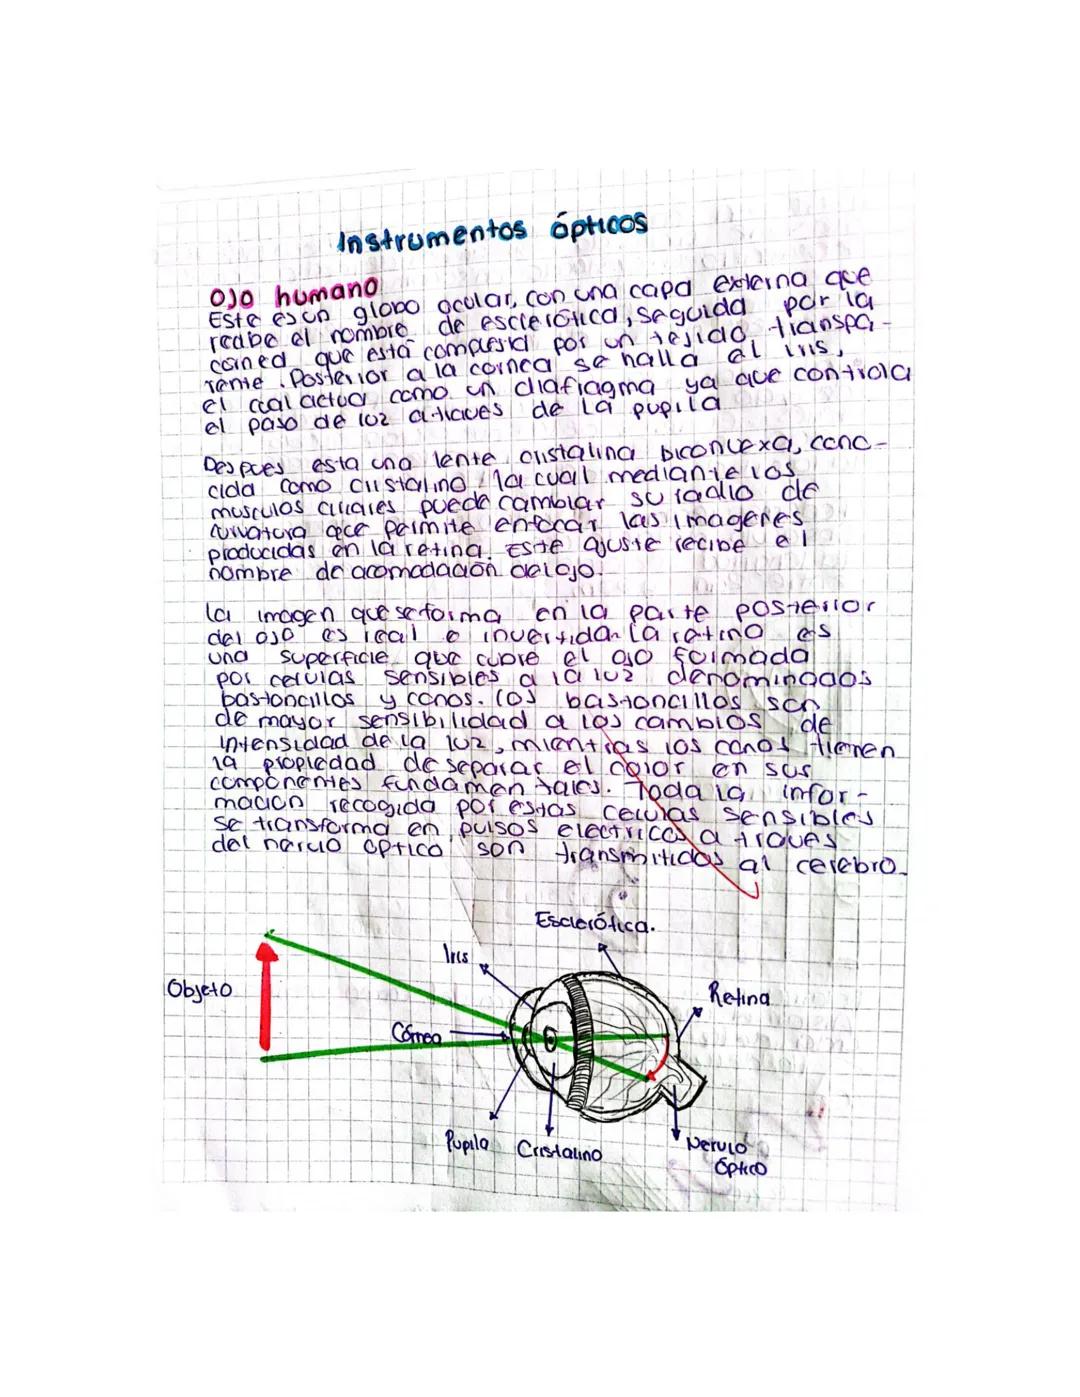 Instrumentos ópticos
Ojo humano
Este es un globo ocular, con una capa externa que
recibe el nombre de esclerótica, seguida por la
cornea que está compuesta por un tejido transpa-
rente. Posterior a la cornea se halla el iris,
el cual actua como un diafragma ya que controla
el paso de luz a traves de la pupila
Despues esta una lente cristalina biconvexa, cono-
cida como cristalino, la cual mediante los
musculos ciliares puede cambiar su radio de
curvatura que permite enfocar las imagenes
producidas en la retina. Este ajuste recibe el
nombre de acomodación del ojo.
La imagen que se forma en la parte posterior
del ojo es real e invertida. La ratina es
una superficie que cubre el ojo formada
por celulas sensibles a la luz denominados
bastoncillos y conos. Los bastoncillos son
de mayor sensibilidad a los cambios de
intensidad de la luz, mientras los conos tienen
la propiedad de separar el color en sus
componentes fundamentales. Toda la infor-
macion recogida por estas celulas sensibles
se transforma en pulsos electricos a traves
del nervio optico son transmitidos al cerebro.
Esclerótica.
Iris
Objeto
Retina
Córnea
Pupila
Cristalino
Nervio
Óptico